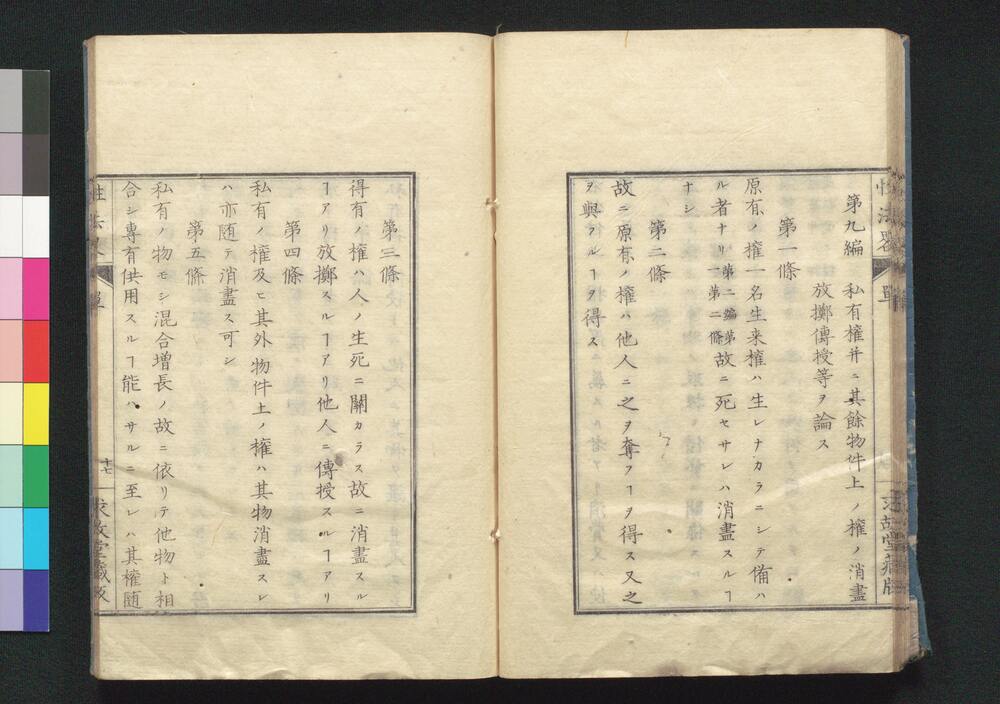 第九編 私有權并ニ其餘物件上ノ權ノ消盡
放擲傳授等ヲ論ス
第一條
原有ノ權一名生来權ハ生レナカラニシテ備ハ
ル者ナリ第二編第一第二條故ニ死セサレハ消盡スルヿ
ナシ
第二條
故ニ原有ノ權ハ他人ニ之ヲ奪フヿヲ得ス又之
ヲ與フルヿヲ得ス
性法畧 單
求故堂藏版
第三條
得有ノ權ハ人ノ生死ニ關カラス故ニ消盡スル
ヿアリ放擲スルヿアリ他人ニ傳授スルヿアリ
第四條
私有ノ權及ヒ其外物件上ノ權ハ其物消盡スレ
ハ亦随テ消盡ス可シ
第五條
私有ノ物モシ混合増長ノ故ニ依リテ他物ト相
合シ專有供用スルヿ能ハサルニ至レハ其權随
性法畧 單 十七 求故堂藏版